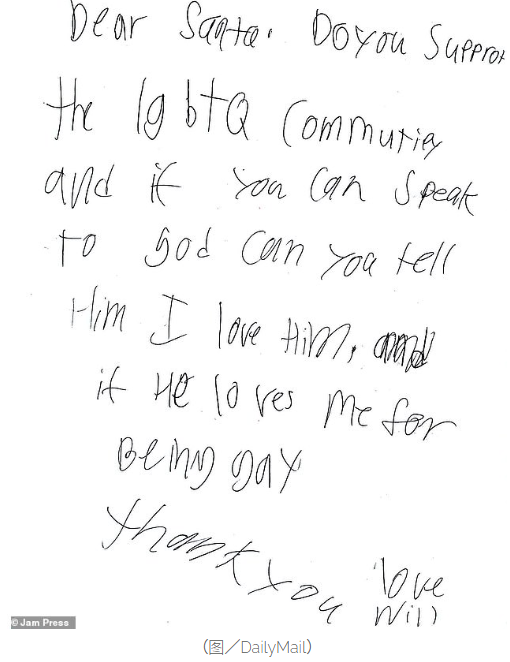 Dear Santa. Do you Suppro
the lgbtQ Commutiy
and if you can speak
to god can you tell
Him I love Him, and
if He loves me for
Being gay
thank you love
Will
© Jam Press
(图／DailyMail)